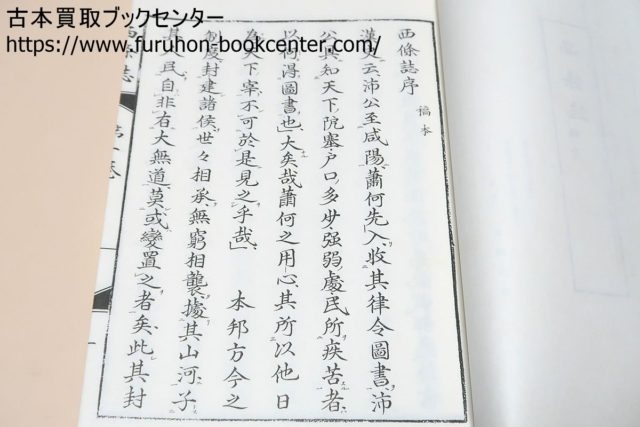 古本買取ブックセンター
https://www.furuhon-bookcenter.com/
西條誌序
稿本
漢史云沛公至咸陽蕭何先入收其律令圖書沛
公具知天下阨塞戸口多少强弱處民所疾苦者
以何得圖書也大矣哉蕭何之用心其所以他日
為天下宰不可於是見之乎哉 本邦方今之
制度封建諸侯世々相承無窮相襲據其山河子
其人民自非有大無道莫或變置之者矣此其封
西條誌